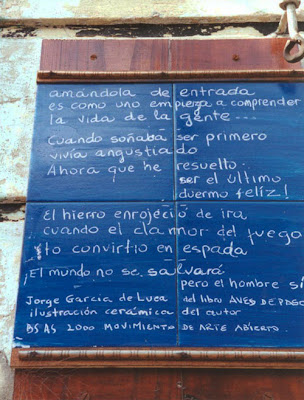 amándola de entrada
es como uno empieza a comprender
la vida de la gente...
Cuando soñaba ser primero
vivía angustiado
Ahora que he resuelto
ser el último
duermo feliz!
El hierro enrojeció de ira
cuando el clamor del fuego
lo convirtio en espada
¡El mundo no se salvará
pero el hombre sí
Jorge Garcia de Luca del libro AVES DE PASO
ilustración cerámica del autor
BS AS 2000 MOVIMIENTO DE ARTE ABIERTO